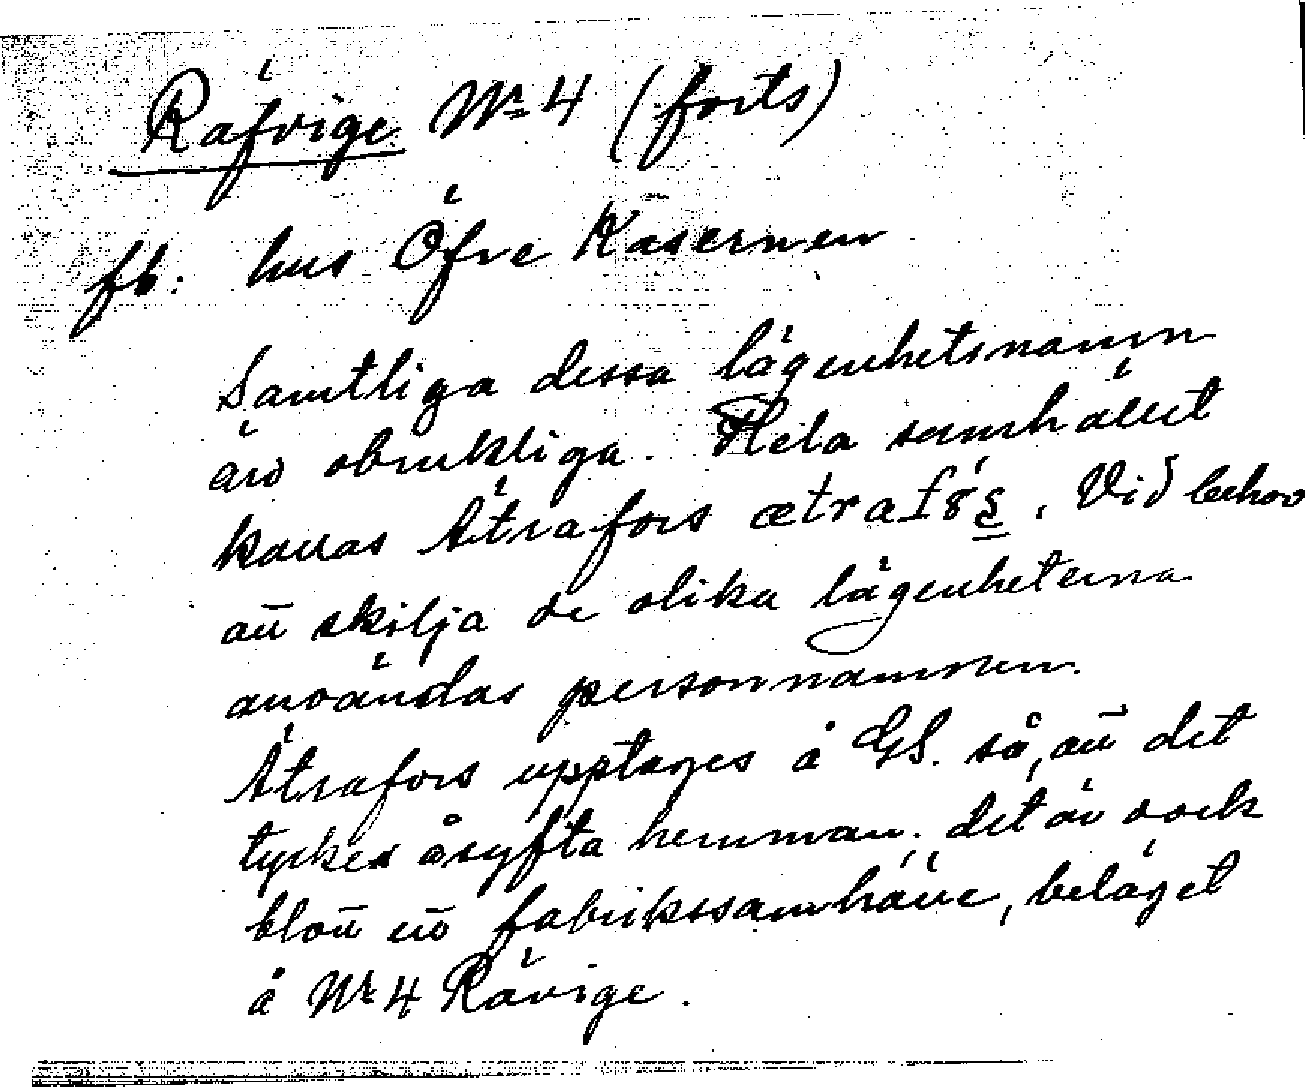 Räfvige Nr 4 (forts)
fb: hus Öfre Kasernen
Samtliga dessa lägenhetsnamn
äro obrukliga. Hela samhället
kallas Ätrafors ætrafos. Vid behov
att skilja de olika lägenheterna
användas personnamnen.
Ätrafors upptages å GS. så, att det
tyckes åsyfta hemman; det är dock
blott ett fabrikssamhälle, beläget
å Nr 4 Rävige.